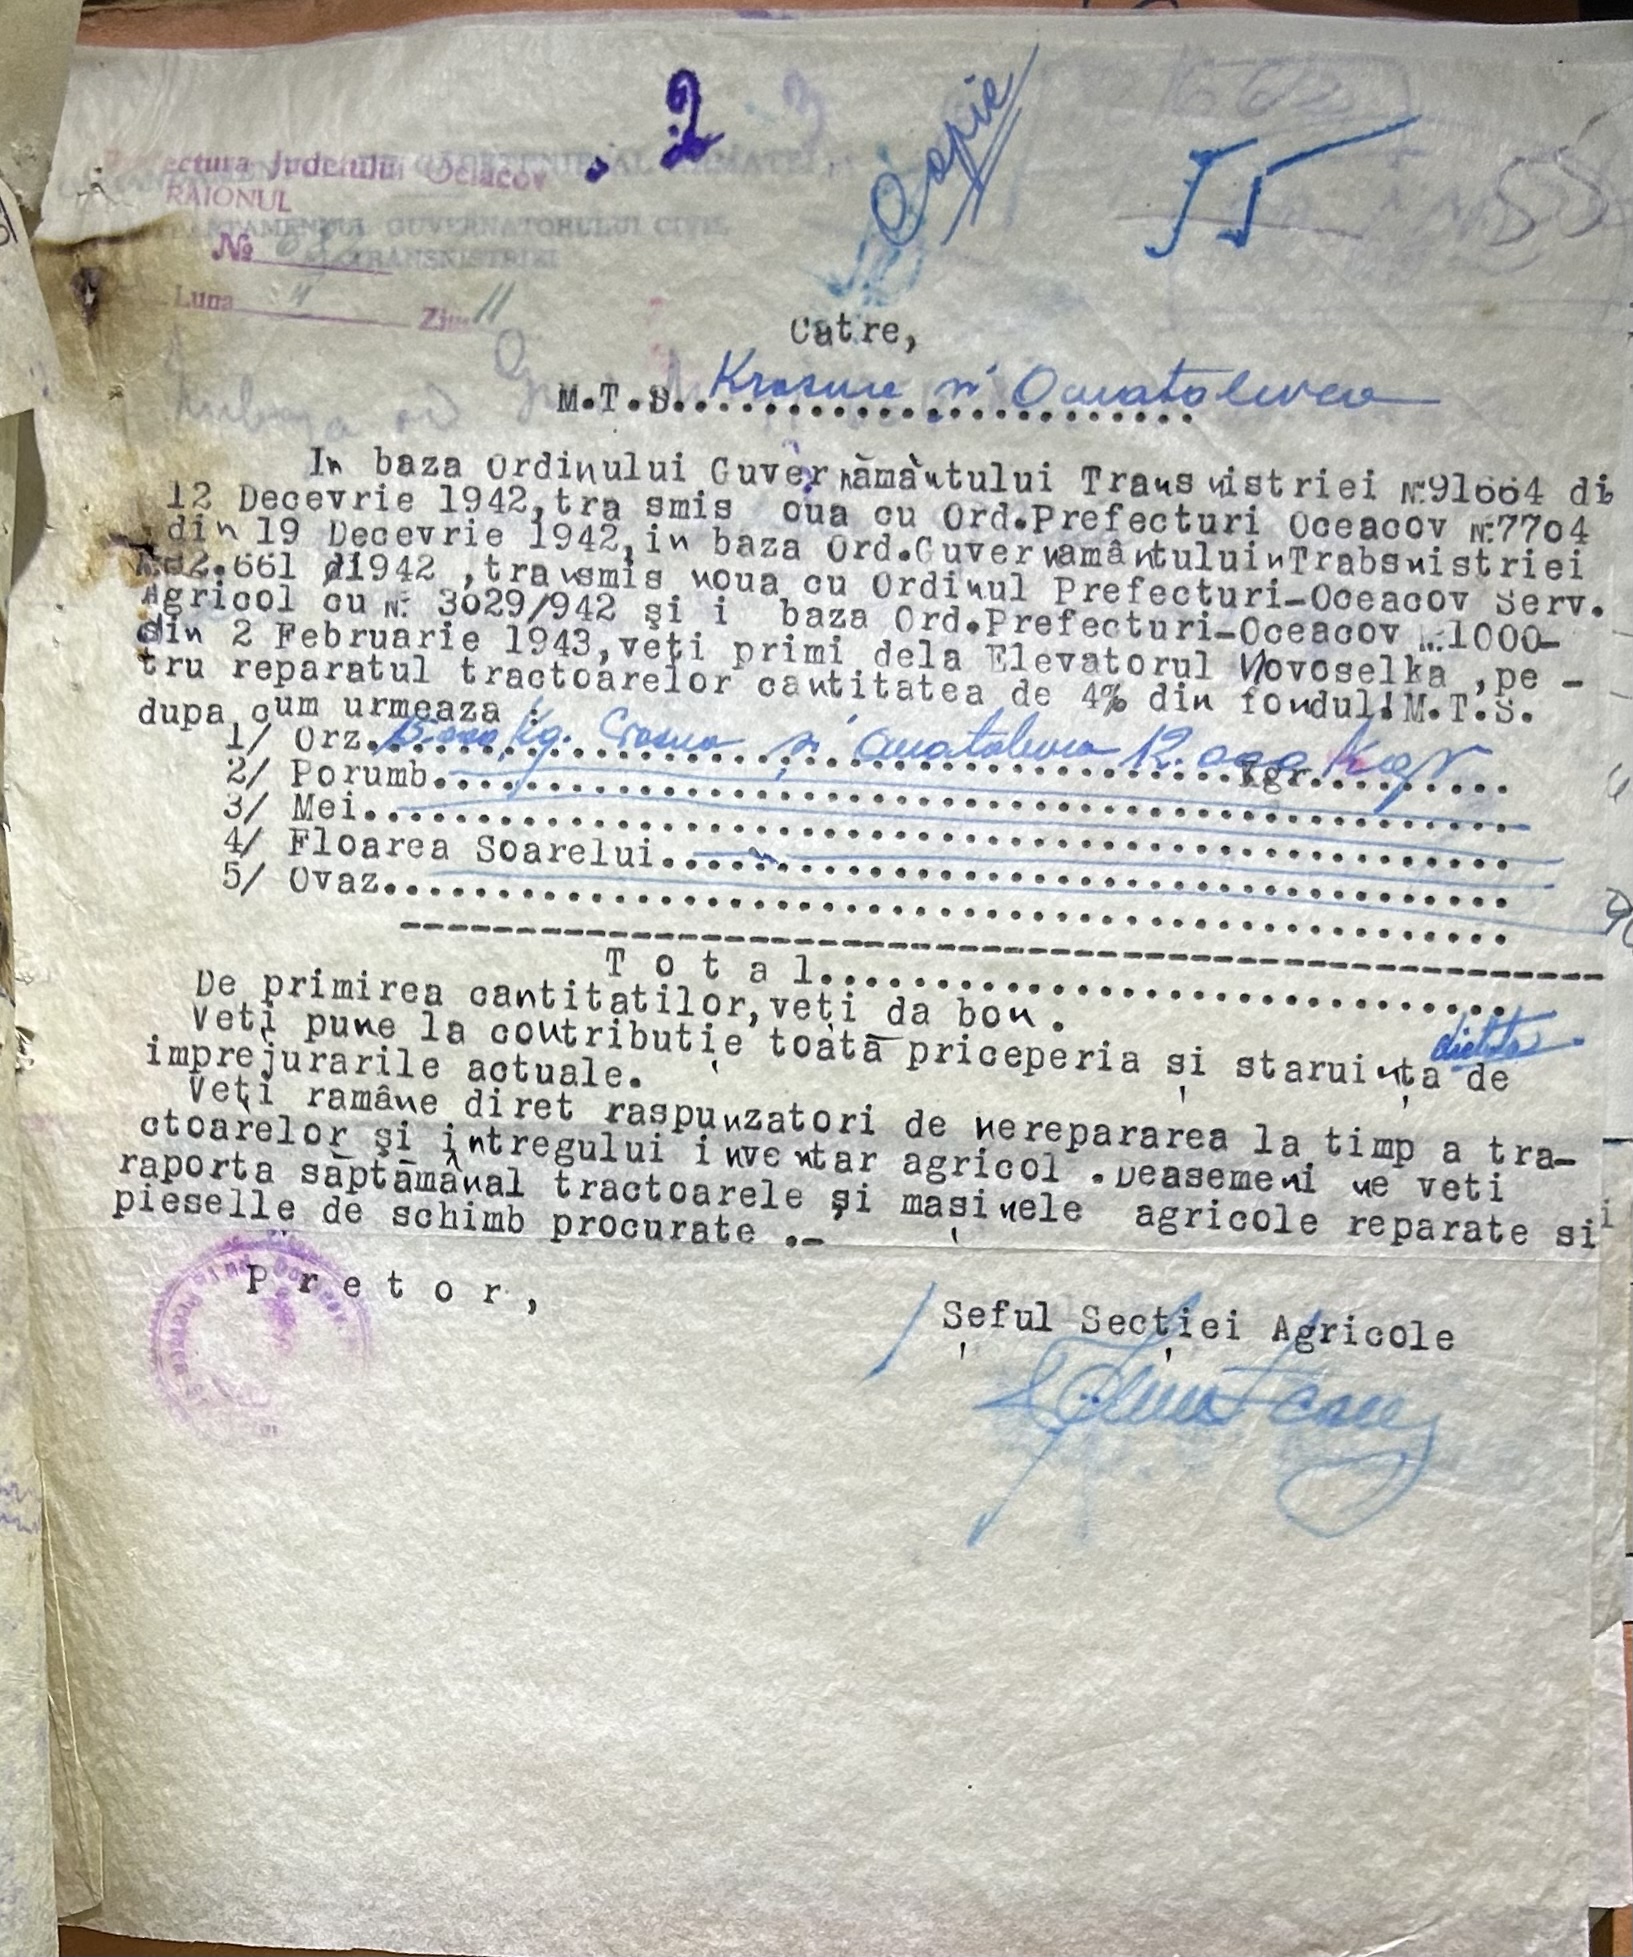 2
Copie
55
ectura Judetului Oceacov
RAIONUL
GUVERNATORULUI CIVIL
TRANSNISTRIEI
No
Luna Ziua 11
Catre,
M.T.S. Krasnre si
In baza Ordinului Guvernământului Transnistriei №91664 di
12 Decevrie 1942, tra smis oua cu Ord.Prefecturi Oceacov №7704
din 19 Decevrie 1942, in baza Ord.GuvernamântuluinTrabsnistriei
2.661 di1942 ,transmis noua cu Ordinul Prefecturi-Oceacov Serv.
Agricol cu № 3029/942 şi i baza Ord.Prefecturi-Oceacov №1000-
din 2 Februarie 1943, veţi primi dela Elevatorul Novoselka ,pe -
tru reparatul tractoarelor cantitatea de 4% din fondul!M.T.S.
dupa cum urmeaza :
1/ Orz. 15.000 Kg. Crasna si 12.000 Kgr
2/ Porumb. Kgr.
3/ Mei.
4/ Floarea Soarelui.
5/ Ovaz.
T o t a l.
De primirea cantitatilor, veţi da bon.
Veţi pune la contributie toată priceperia şi staruinţa de
imprejurarile actuale.
Veţi ramâne diret raspunzatori de nerepararea la timp a tra-
ctoarelor şi întregului inventar agricol .Deasemeni ne veti
raporta săptămânal tractoarele şi maşinele agricole reparate si
pieselle de schimb procurate .-
P r e t o r ,
Şeful Secţiei Agricole